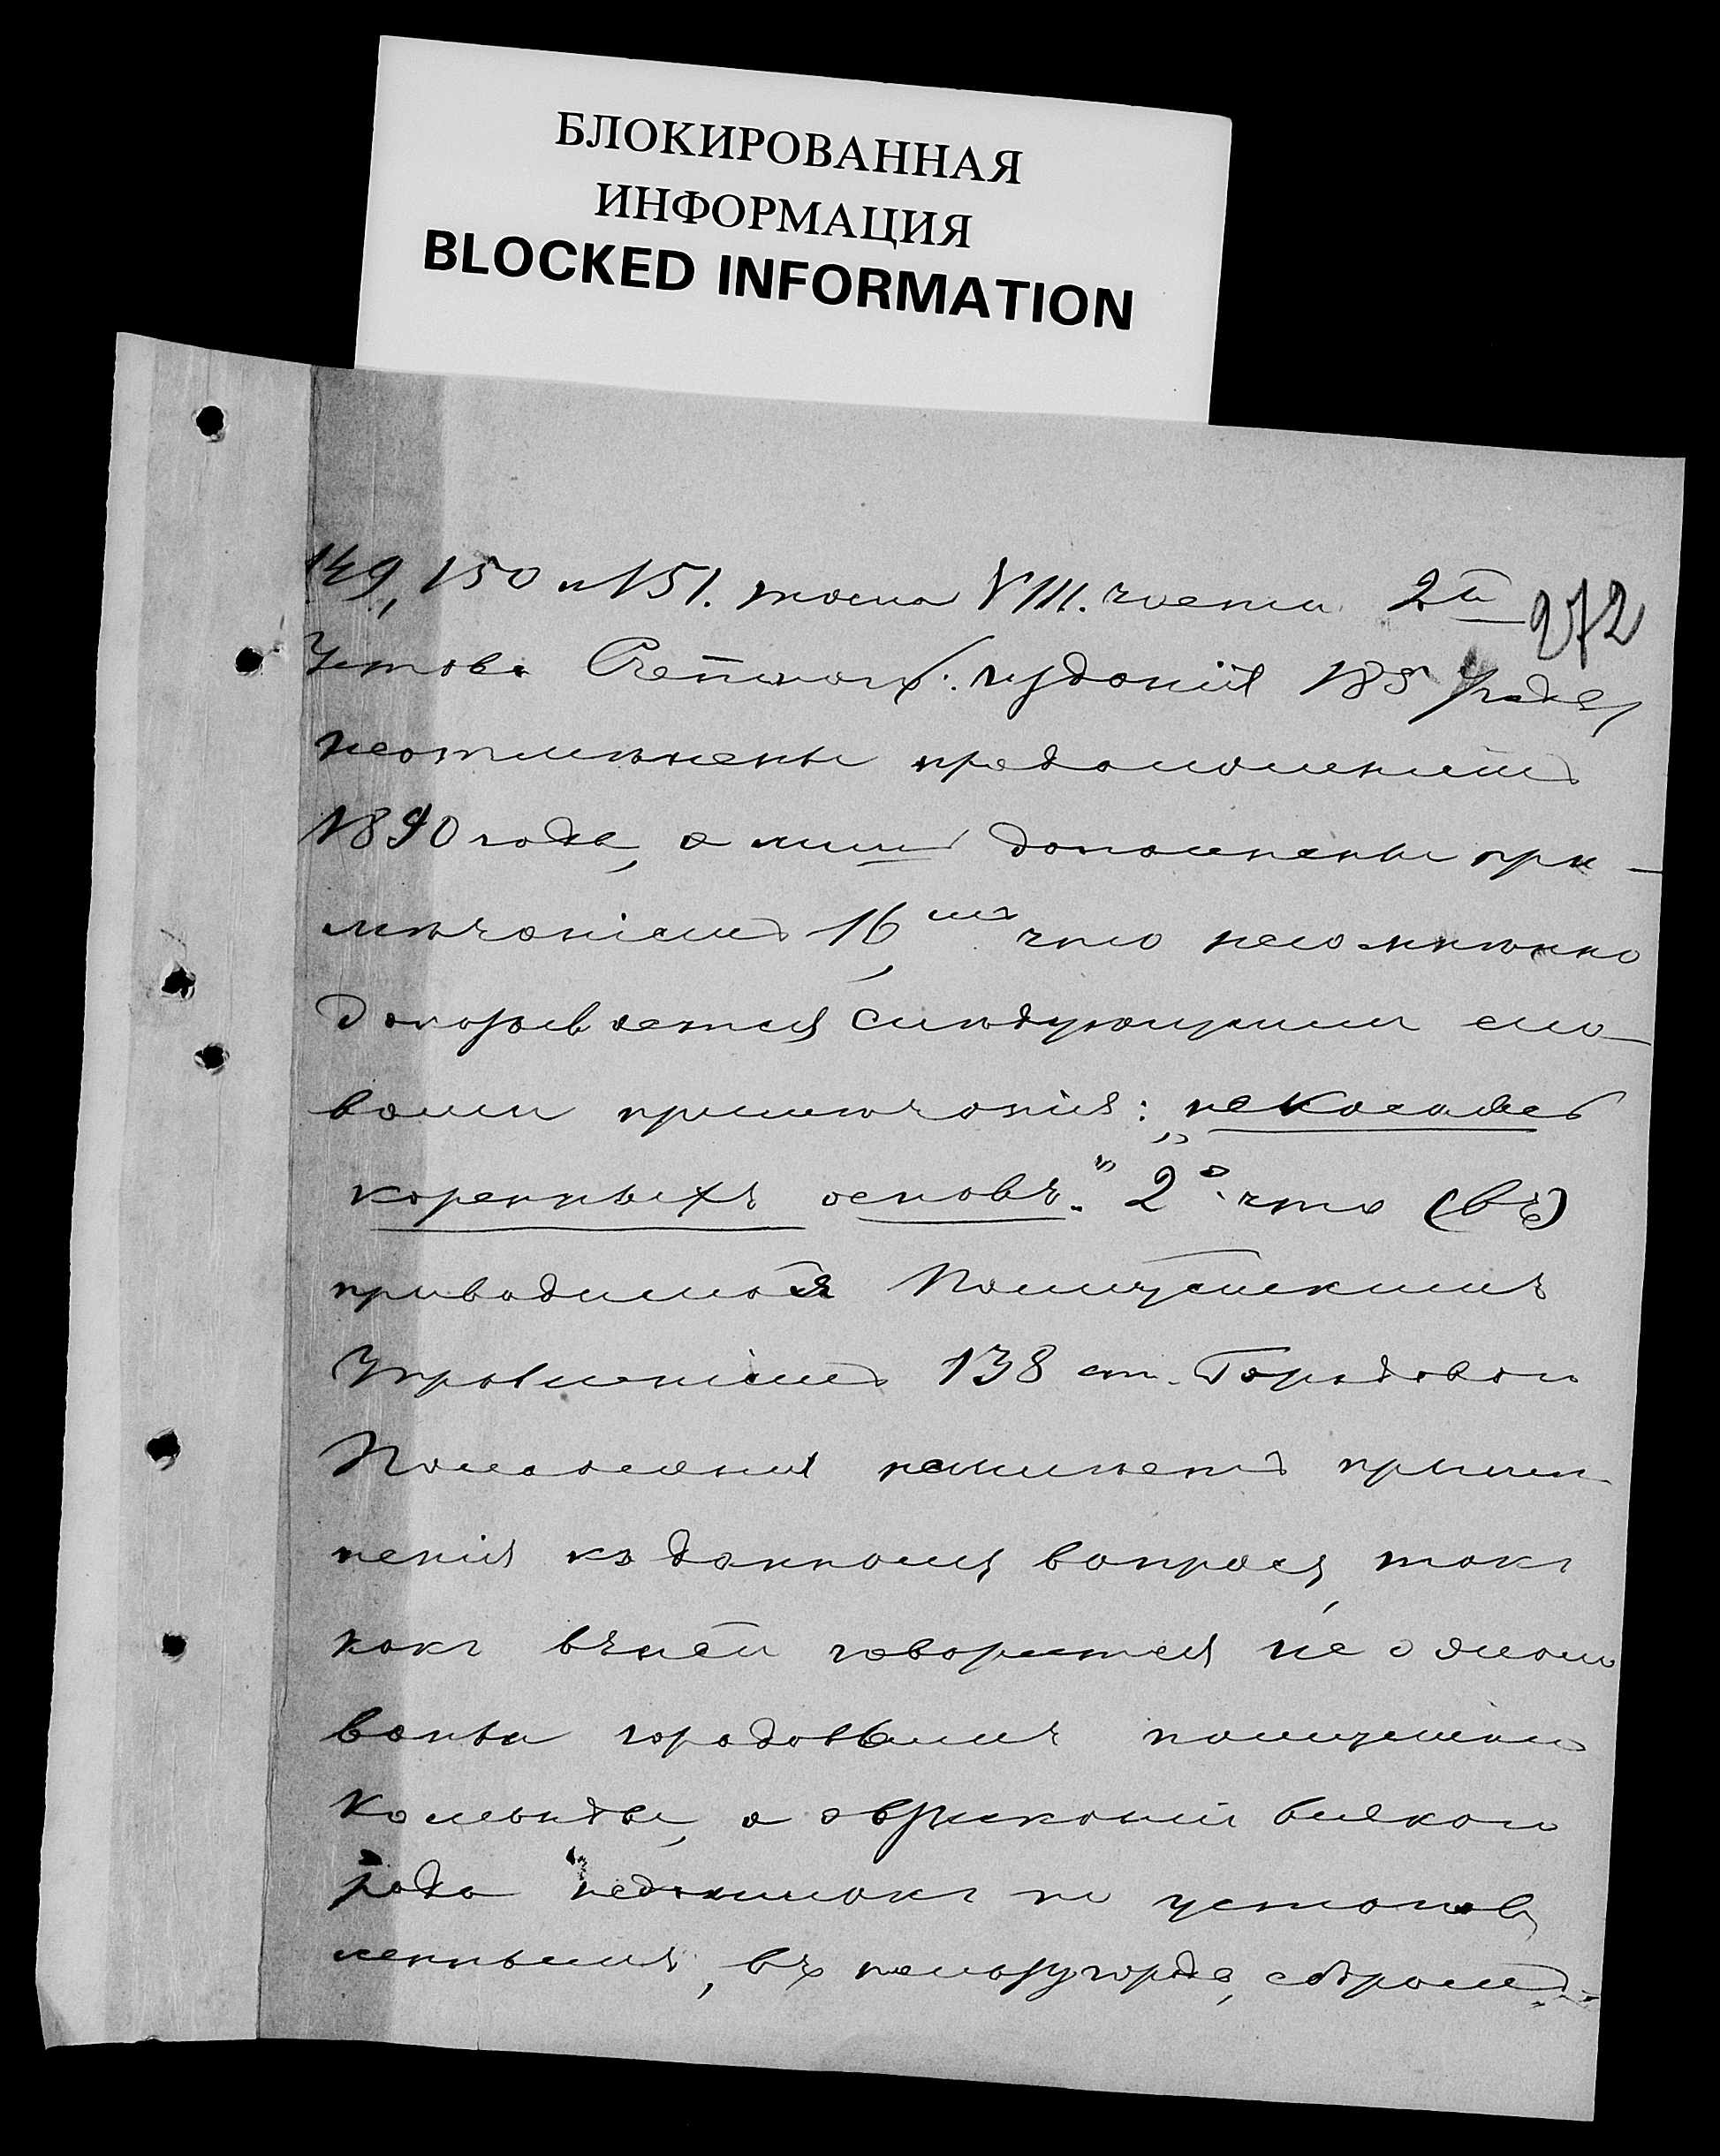 БЛОКИРОВАННАЯ
ИНФОРМАЦИЯ
BLOCKED INFORMATION
149, 150 и 151. тома VIII. части 2й
272
Устава Счетнаго изданія 185 года,
неотмѣнены
1890 года, а лишь дополнены при-
мѣчаніемъ 16мъ, что несомнѣнно
доказывается слѣдующими сло-
вами примѣчанія: „не касаясь
коренныхъ основъ." 2º. что (въ)
приводимая Полицейскимъ
Управленіемъ 138 ст. Городоваго
Положенія неимѣетъ примѣ-
ненія къ данному вопросу, такъ
какъ въ ней говорится не о жало-
ваньи городовымъ полицейской
команды, а о взысканіи всякаго
рода недоимокъ по установ
леннымъ, въ пользу города, сборамъ.